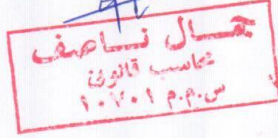 جمال ناصف
محاسب قانوني
س.م.م ١٠٧٠١